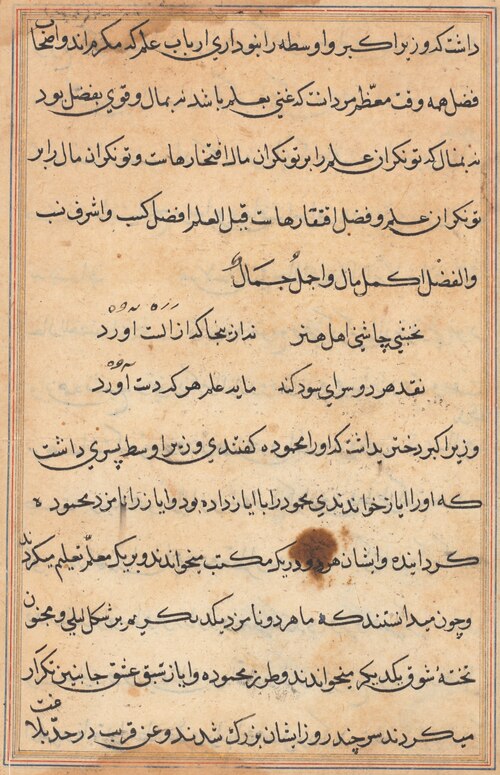 داشت که وزیر اکبر و اوسطه را بنوداری ارباب علم که مکرم اند و اصحاب
فضل همه وقت معظم مردانت که غنی بعلم باشد نه بمال و قوی بفضل بود
نه بمنال که تونکران علم را بر تونکران مال افتخارهاست و تونکران مال را بر
تونکران علم و فضل افتقارهاست قیل العلم افضل کسب و اشرف نسب
والفضل اکمل مال و اجمل جمال
نخشبی چاشنی اهل هنر نداز بنجا که از الست آورد
نقد هر دو سرای سود کنه مایه علم هر که دست آورد
وزیر اکبر دختر بداشت که او را محموده کفتندی وزیر اوسط پسری داشت
که او را ایاز خواندندی محمود را با ایاز داده بود و ایاز را نامزد محموده
کردانیده و ایشان هر دو در یک مکتب میخواندند و بر یک معلم تعلیم میکردند
و چون میدانستند که ما هر دو نامزد یکدیکریم بر شکل لیلی و مجنون
تختهٔ شوق یکدیکر میخواندند و بطور محموده و ایاز سبق عشق جانبین تکرار
میکردند سر چند روز ایشان بزرک شدند و عن قریب در حد بلاغت